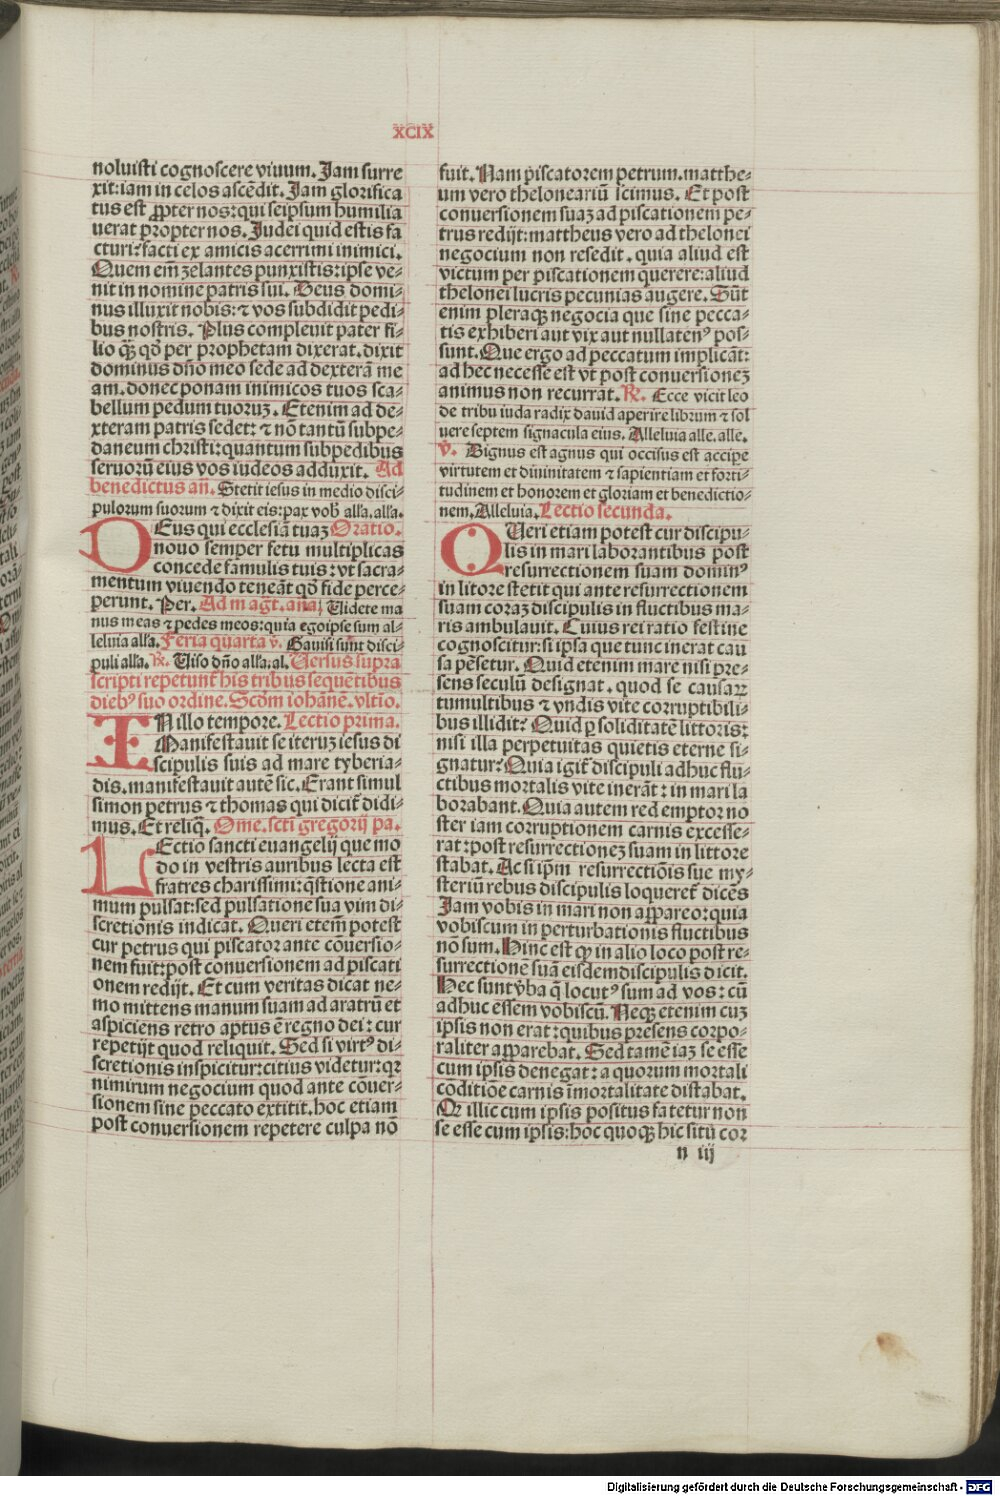 XCIX
noluisti cognoscere viuum. Jam surre
xit: iam in celos ascēdit. Jam glorifica
tus est ꝓpter nos: qui seipsum humilia
uerat propter nos. Judei quid estis fa
cturi? facti ex amicis acerrimi inimici.
Quem em̄ zelantes punxistis: ipse ve-
nit in nomine patris sui. Deus domi-
nus illuxit nobis: ⁊ vos subdidit pedi-
bus nostris. Plus compleuit pater fi-
lio qꝫ̄ qď per prophetam dixerat. dixit
dominus dn̄o meo sede ad dexterā me
am. donec ponam inimicos tuos sca-
bellum pedum tuoruꝫ. Etenim ad de-
xteram patris sedet: ⁊ nō tantū subpe-
daneum christi: quantum subpedibus
seruorū eius vos iudeos adduxit. Ad
benedictus an̄. Stetit iesus in medio disci-
pulorum suorum ⁊ dixit eis: pax vob̄ all'a. all'a.
DEus qui ecclesiā tuaꝫ Oratio.
nouo semper fetu multiplicas
concede famulis tuis: vt sacra-
mentum viuendo teneāt qď fide perce-
perunt. Per. Ad m aḡt. ana; Uidete ma
nus meas ⁊ pedes meos: quia ego ipse sum al-
leluia all'a. Feria quarta v̄. Gauisi sunt disci-
puli all'a. ℟. Uiso dn̄o all'a. al. Uersus supra
scripti repetunt̄ his tribus sequētibus
diebꝰ suo ordine. Scďm iohānē. vltīo.
IN illo tempore. Lectio prima.
Manifestauit se iteruꝫ iesus di
scipulis suis ad mare tyberia-
dis. manifestauit autē sic. Erant simul
simon petrus ⁊ thomas qui dicit̄ didi-
mus. Et reliq̄. Ome. scti gregorij pa.
LEctio sancti euangelij que mo
do in vestris auribus lecta est
fratres charissimi: q̄stione ani-
mum pulsat: sed pulsatione sua vim di-
scretionis indicat. Queri etem̄ potest
cur petrus qui piscator ante cōuersio-
nem fuit: post conuersionem ad piscati
onem redijt. Et cum veritas dicat ne-
mo mittens manum suam ad aratrū et
aspiciens retro aptus ē regno dei: cur
repetijt quod reliquit. Sed si virtꝰ di-
scretionis inspicitur: citius videtur: qꝛ
nimirum negocium quod ante cōuer-
sionem sine peccato extitit. hoc etiam
post conuersionem repetere culpa nō
fuit. Nam piscatorem petrum. matthe-
um vero theloneariū scimus. Et post
conuersionem suaꝫ ad piscationem pe-
trus redijt: mattheus vero ad thelonei
negocium non resedit. quia aliud est
victum per piscationem querere: aliud
thelonei lucris pecunias augere. Sūt
enim pleraqꝫ negocia que sine pecca-
tis exhiberi aut vix aut nullatenꝰ pos-
sunt. Que ergo ad peccatum implicāt:
ad hec necesse est vt post conuersioneꝫ
animus non recurrat. ℟. Ecce vicit leo
de tribu iuda radix dauid aperire librum ⁊ sol
uere septem signacula eius. Alleluia alle. alle.
℣. Dignus est agnus qui occisus est accipe
virtutem et diuinitatem ⁊ sapientiam et forti-
tudinem et honorem et gloriam et benedictio-
nem. Alleluia. Lectio secunda.
QUeri etiam potest cur discipu-
lis in mari laborantibus post
resurrectionem suam dominꝰ
in litore stetit qui ante resurrectionem
suam coraꝫ discipulis in fluctibus ma-
ris ambulauit. Cuius rei ratio festine
cognoscitur: si ipsa que tunc inerat cau
sa pēsetur. Quid etenim mare nisi pre-
sens seculū designat. quod se causaꝝ
tumultibus ⁊ vndis vite corruptibili-
bus illidit? Quid ꝑ soliditatē littoris:
nisi illa perpetuitas quietis eterne si-
gnatur? Quia igit̄ discipuli adhuc flu-
ctibus mortalis vite inerāt: in mari la
borabant. Quia autem redemptor no
ster iam corruptionem carnis excesse-
rat: post resurrectioneꝫ suam in littore
stabat. Ac si ip̄m resurrectiōis sue my-
steriū rebus discipulis loqueret̄ dicēs
Jam vobis in mari non aꝑpareo: quia
vobiscum in perturbationis fluctibus
nō sum. Hinc est ꝙ in alio loco post re-
surrectionē suā eisdem discipulis dicit.
Hec sunt v̄ba q̄ locutꝰ sum ad vos: cū
adhuc essem vobiscū. Neqꝫ etenim cuꝫ
ipsis non erat: quibus presens corpo-
raliter aꝑparebat. Sed tamē iaꝫ se esse
cum ipsis denegat: a quorum mortali
cōditiōe carnis īmortalitate distabat.
Qꝛ illic cum ipsis positus fatetur non
se esse cum ipsis: hoc quoqꝫ hic sitū cor
n iij
Digitalisierung gefördert durch die Deutsche Forschungsgemeinschaft - DFG